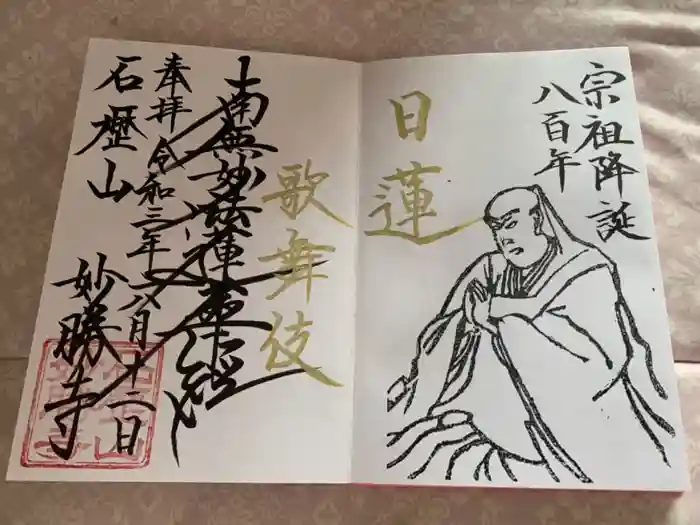 宗祖降誕
八百年
日蓮
歌舞伎
南無妙法蓮華経
奉拝 令和三年八月十二日
石壓山
妙勝寺